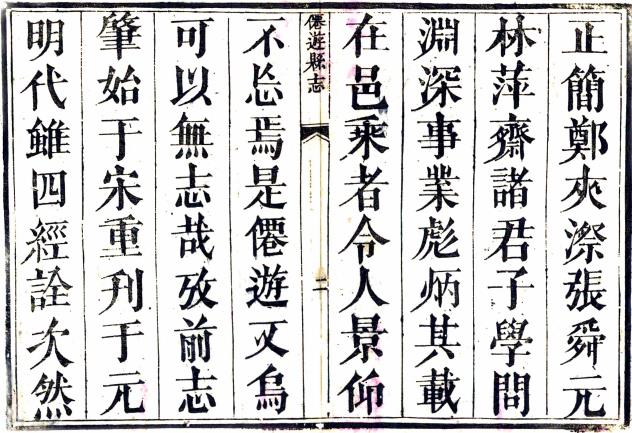 正簡鄭夾漈張舜元
林萍齋諸君子學問
淵深事業彪炳其載
在邑乘者令人景仰
僊遊縣志
二
不忘焉是僊遊又烏
可以無志哉攷前志
肇始于宋重刋于元
明代雖四經詮次然